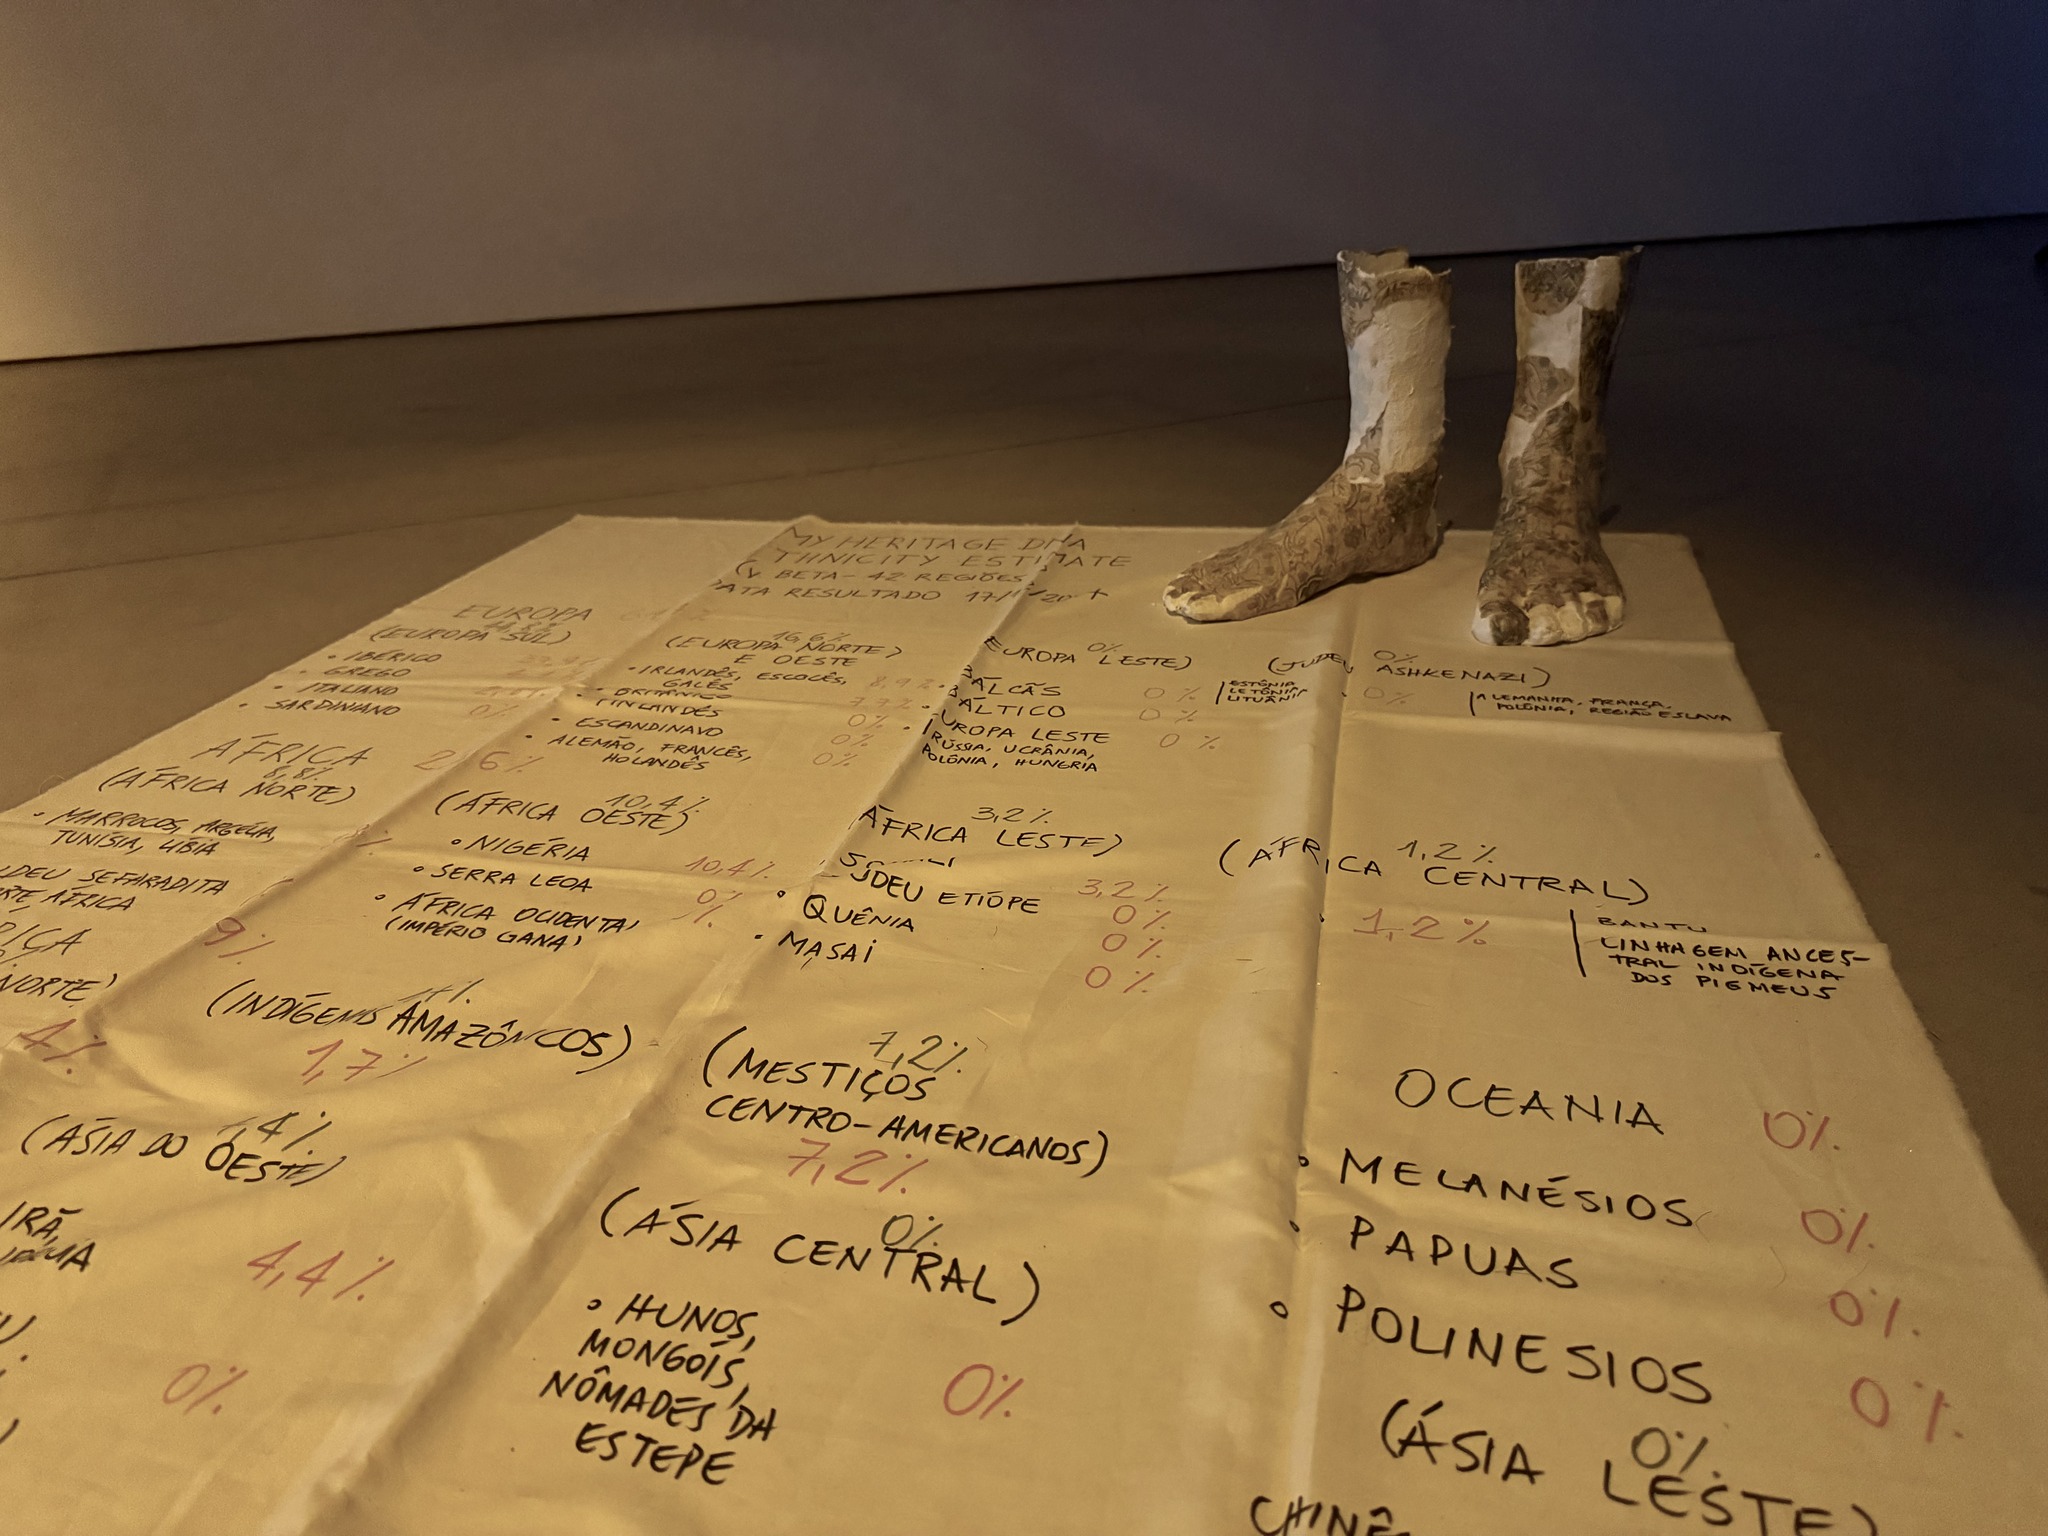 MY HERITAGE DNA
THNICITY ESTIMATE
(V BETA - 42 REGIÕES
ATA RESULTADO 17/
EUROPA
(EUROPA SUL)
• IBÉRICO
• GREGO
• ITALIANO
• SARDINIANO 0%
16,6%
(EUROPA NORTE)
E OESTE
• IRLANDÊS, ESCOCÊS, 8,9%
GALÊS
• BRITÂNICO 7,7%
FINLANDÊS 0%
• ESCANDINAVO 0%
• ALEMÃO, FRANCÊS, 0%
HOLANDÊS
0%
EUROPA LESTE)
BALCÃS 0%
BÁLTICO 0%
ESTÔNIA
LETÔNIA
LITUÂNIA
• EUROPA LESTE 0%
RÚSSIA, UCRÂNIA,
POLÔNIA, HUNGRIA
0%
(JUDEU ASHKENAZI)
• 0%
ALEMANHA, FRANÇA,
POLÔNIA, REGIÃO ESLAVA
ÁFRICA 2 6%
8,8%
(ÁFRICA NORTE)
• MARROCOS, ARGÉLIA,
TUNÍSIA, LÍBIA
DEU SEFARADITA
RTE ÁFRICA
10,4%
(ÁFRICA OESTE)
• NIGÉRIA 10,4%
• SERRA LEOA 0%
• ÁFRICA OCIDENTAL %
(IMPÉRIO GANA)
3,2%
ÁFRICA LESTE)
3,2%
JUDEU ETÍOPE 0%
• QUÊNIA 0%
• MASAI 0%
1,2%
(ÁFRICA CENTRAL)
• 1,2%
BANTU
LINHAGEM ANCES-
TRAL INDÍGENA
DOS PIGMEUS
RIÇA 9%
NORTE)
4%
(INDÍGENAS AMAZÔNICOS)
1,7%
7,2%
(MESTIÇOS
CENTRO-AMERICANOS)
7,2%
OCEANIA 0%
• MELANÉSIOS 0%
• PAPUAS 0%
• POLINESIOS 0%
4%
(ÁSIA DO OESTE)
IRÃ, 4,4%
0%
0%
(ÁSIA CENTRAL)
• HUNOS,
MONGOIS, 0%
NÔMADES DA
ESTEPE
0%
(ÁSIA LESTE)
CHINÊ